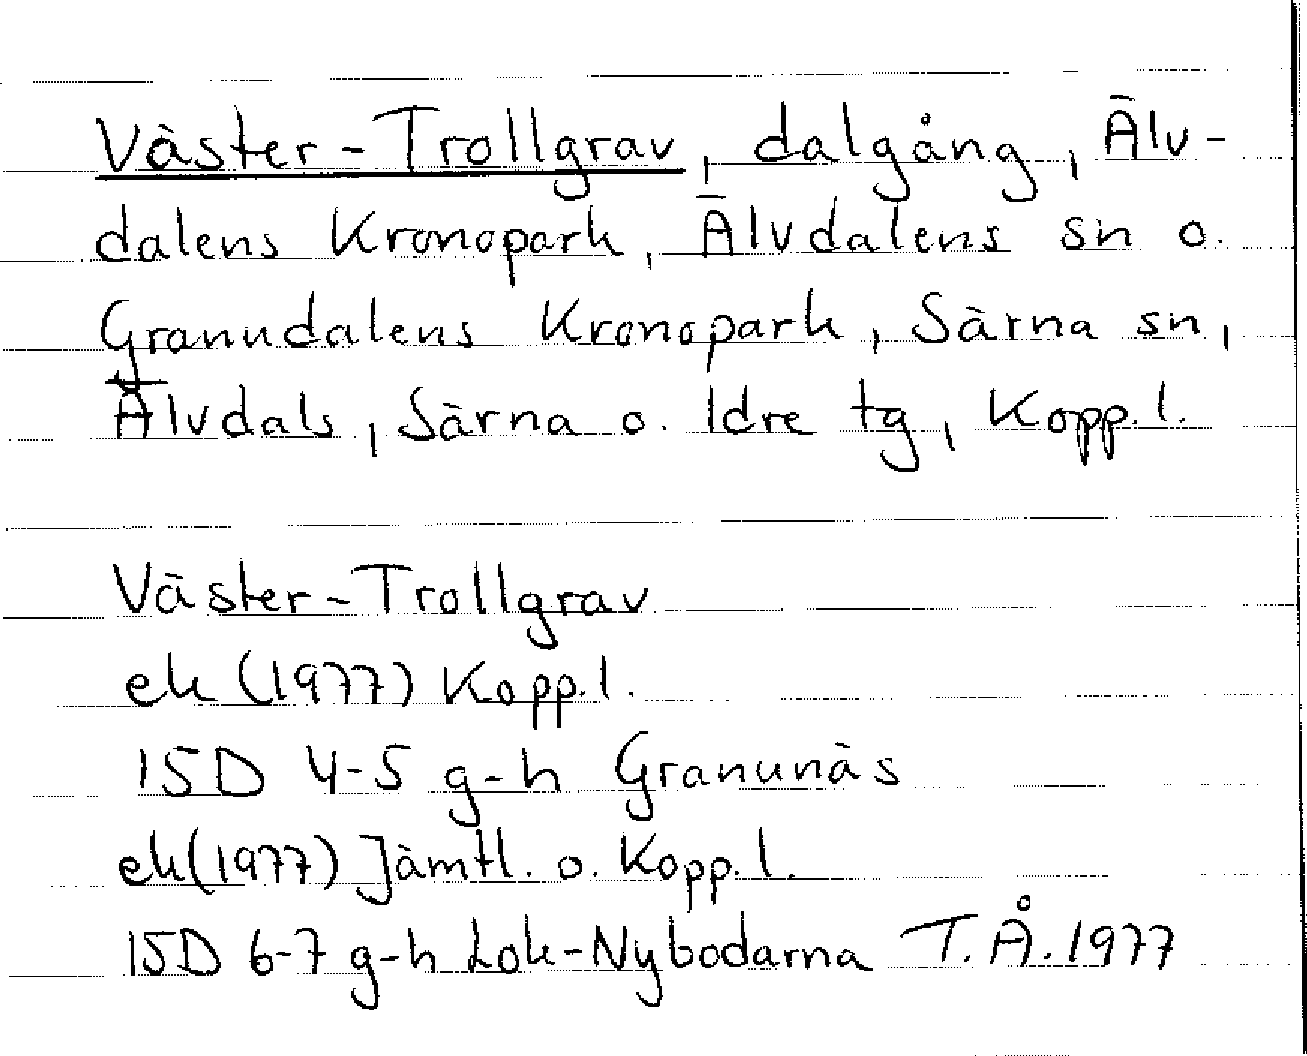 Väster-Trollgrav, dalgång, Älv-
dalens Kronopark, Älvdalens sn o.
Granudalens Kronopark, Särna sn,
Älvdals, Särna o. Idre tg, Kopp. l.
Väster-Trollgrav
ek (1977) Kopp. l.
15D 4-5 g-h Granunäs
ek (1977) Jämtl. o. Kopp. l.
15D 6-7 g-h Lok-Nybodarna T.Å. 1977